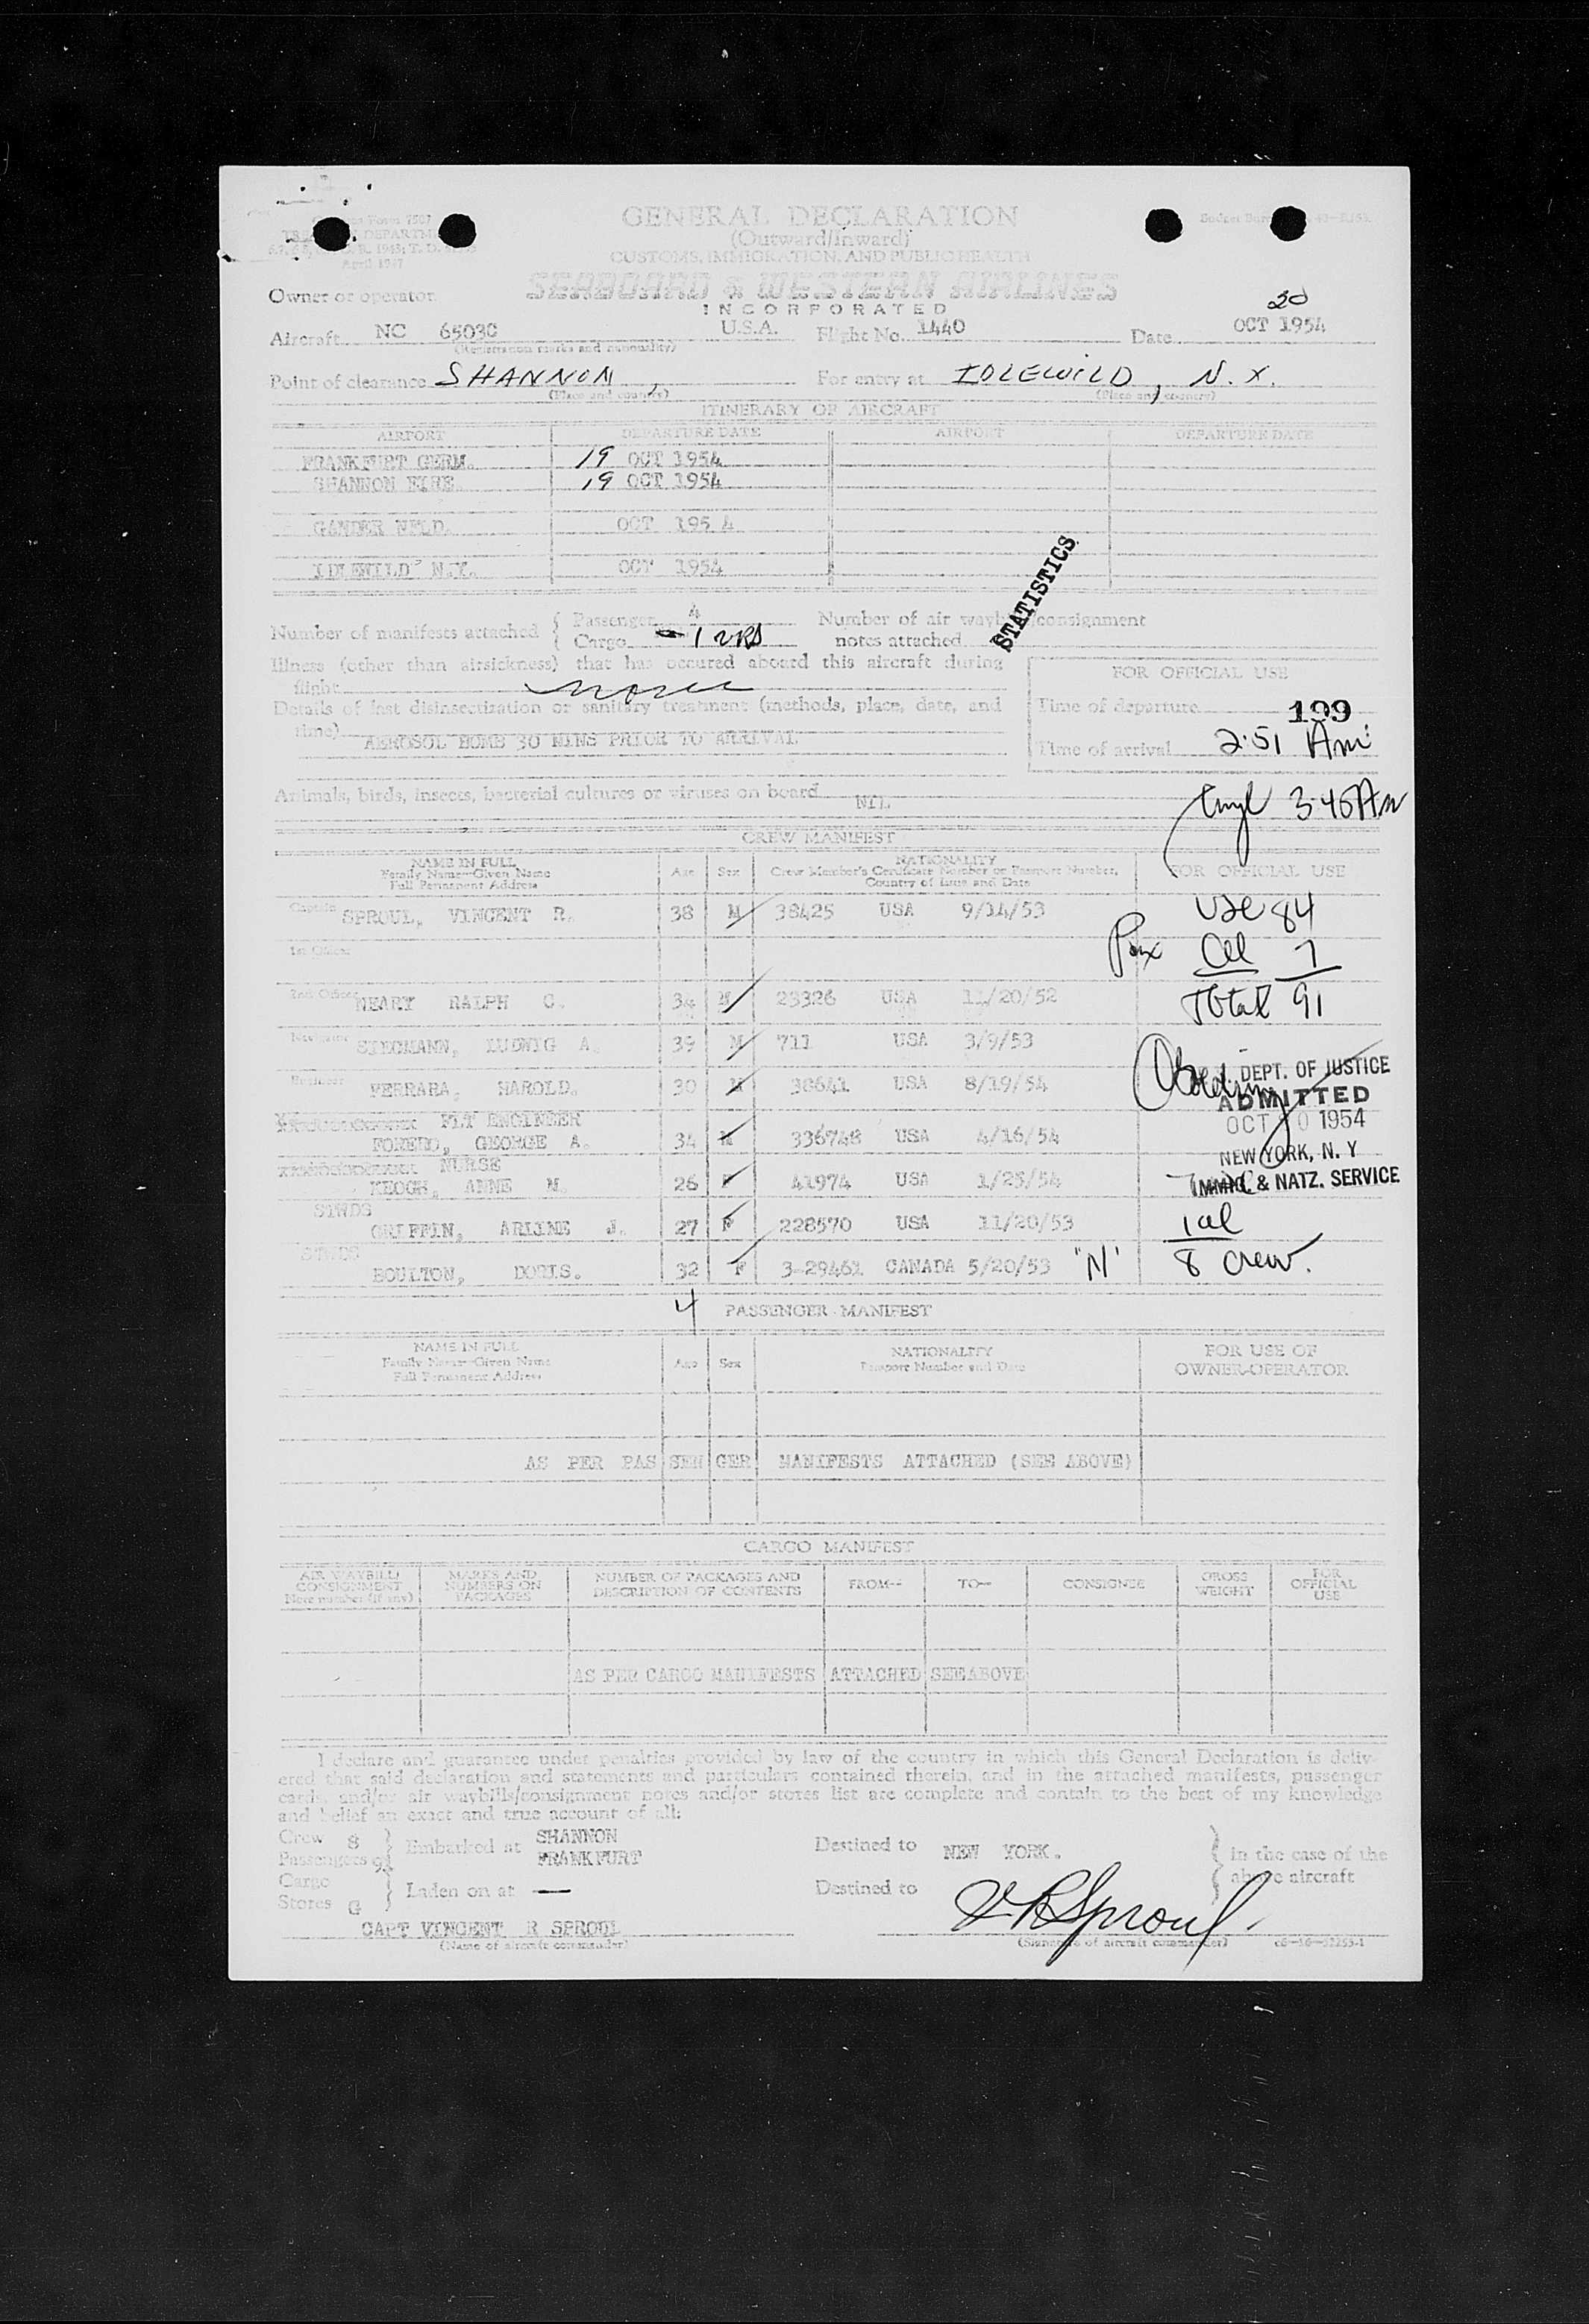 GENERAL DECLARATION
(Outward/Inward)
CUSTOMS, IMMIGRATION, AND PUBLIC HEALTH
April 1947
SEABOARD & WESTERN AIRLINES
INCORPORATED
Owner or operator
20
Aircraft NC 6503C U.S.A. Flight No. 1440 Date OCT 1954
(Registration marks and nationality)
Point of clearance SHANNON, For entry at IDLEWILD, N.Y.
(Place and country) (Place and country)
ITINERARY OF AIRCRAFT
AIRPORT DEPARTURE DATE AIRPORT DEPARTURE DATE
FRANKFURT GERM. 19 OCT 1954
SHANNON EIRE 19 OCT 1954
GANDER NFLD. OCT 195 4
IDLEWILD N.Y. OCT 1954
STATISTICS
Number of manifests attached { Passenger 4 Number of air waybill consignment
Cargo 1 notes attached
Illness (other than airsickness) that has occured aboard this aircraft during
flight none
FOR OFFICIAL USE
Details of last disinsectization or sanitary treatment (methods, place, date, and
time) AEROSOL BOMB 30 MINS PRIOR TO ARRIVAL
Time of departure 199
Time of arrival 2:51 Am
Animals, birds, insects, bacterial cultures or viruses on board NIL
3:45 AM
CREW MANIFEST
NAME IN FULL
Family Name—Given Name
Full Permanent Address
Age Sex
NATIONALITY
Crew Member's Certificate Number or Passport Number,
Country of Issue and Date
FOR OFFICIAL USE
Captain SPROUL, VINCENT R. 38 M 38425 USA 9/14/53
USC 84
1st Officer
Pax Al 7
2nd Officer NEARY RALPH C. 34 M 23326 USA 11/20/52
Total 91
Navigator STEGMANN, LUDWIG A. 39 M 711 USA 3/9/53
Engineer FERRARA, HAROLD. 30 M 38641 USA 8/19/54
U.S. DEPT. OF JUSTICE
ADMITTED
OCT 20 1954
NEW YORK, N. Y
IMMIG. & NATZ. SERVICE
FLT ENGINEER
FOREDO, GEORGE A. 34 M 336748 USA 4/16/54
NURSE
KEOGH, ANNE M. 26 F 41974 USA 1/25/54
STWDS
GRIFFIN, ARLINE J. 27 F 228570 USA 11/20/53
1 al
STWDS
BOULTON, DORIS. 32 F 3-29461 CANADA 5/20/53 "N"
8 crew.
4 PASSENGER MANIFEST
NAME IN FULL
Family Name—Given Name
Full Permanent Address
Age Sex
NATIONALITY
Passport Number and Date
FOR USE OF
OWNER-OPERATOR
AS PER PAS SEN GER MANIFESTS ATTACHED (SEE ABOVE)
CARGO MANIFEST
AIR WAYBILL/
CONSIGNMENT
Note number (if any)
MARKS AND
NUMBERS ON
PACKAGES
NUMBER OF PACKAGES AND
DESCRIPTION OF CONTENTS
FROM—
TO—
CONSIGNEE
GROSS
WEIGHT
FOR
OFFICIAL
USE
AS PER CARGO MANIFESTS ATTACHED SEE ABOVE
I declare and guarantee under penalties provided by law of the country in which this General Declaration is deliv-
ered that said declaration and statements and particulars contained therein, and in the attached manifests, passenger
cards, and/or air waybills/consignment notes and/or stores list are complete and contain to the best of my knowledge
and belief an exact and true account of all:
Crew 8 } Embarked at SHANNON Destined to NEW YORK. } in the case of the
Passengers 91 FRANKFURT above aircraft
Cargo } Laden on at — Destined to
Stores G
CAPT VINCENT R SPROUL V R Sproul.
(Name of aircraft commander) (Signature of aircraft commander)